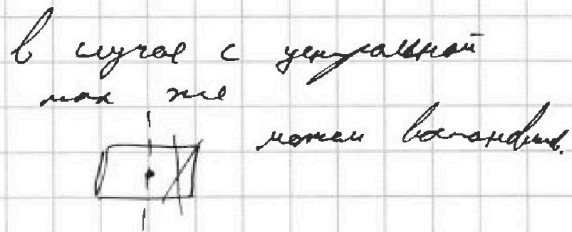 в случае с центральной
так же
можем восстановить.